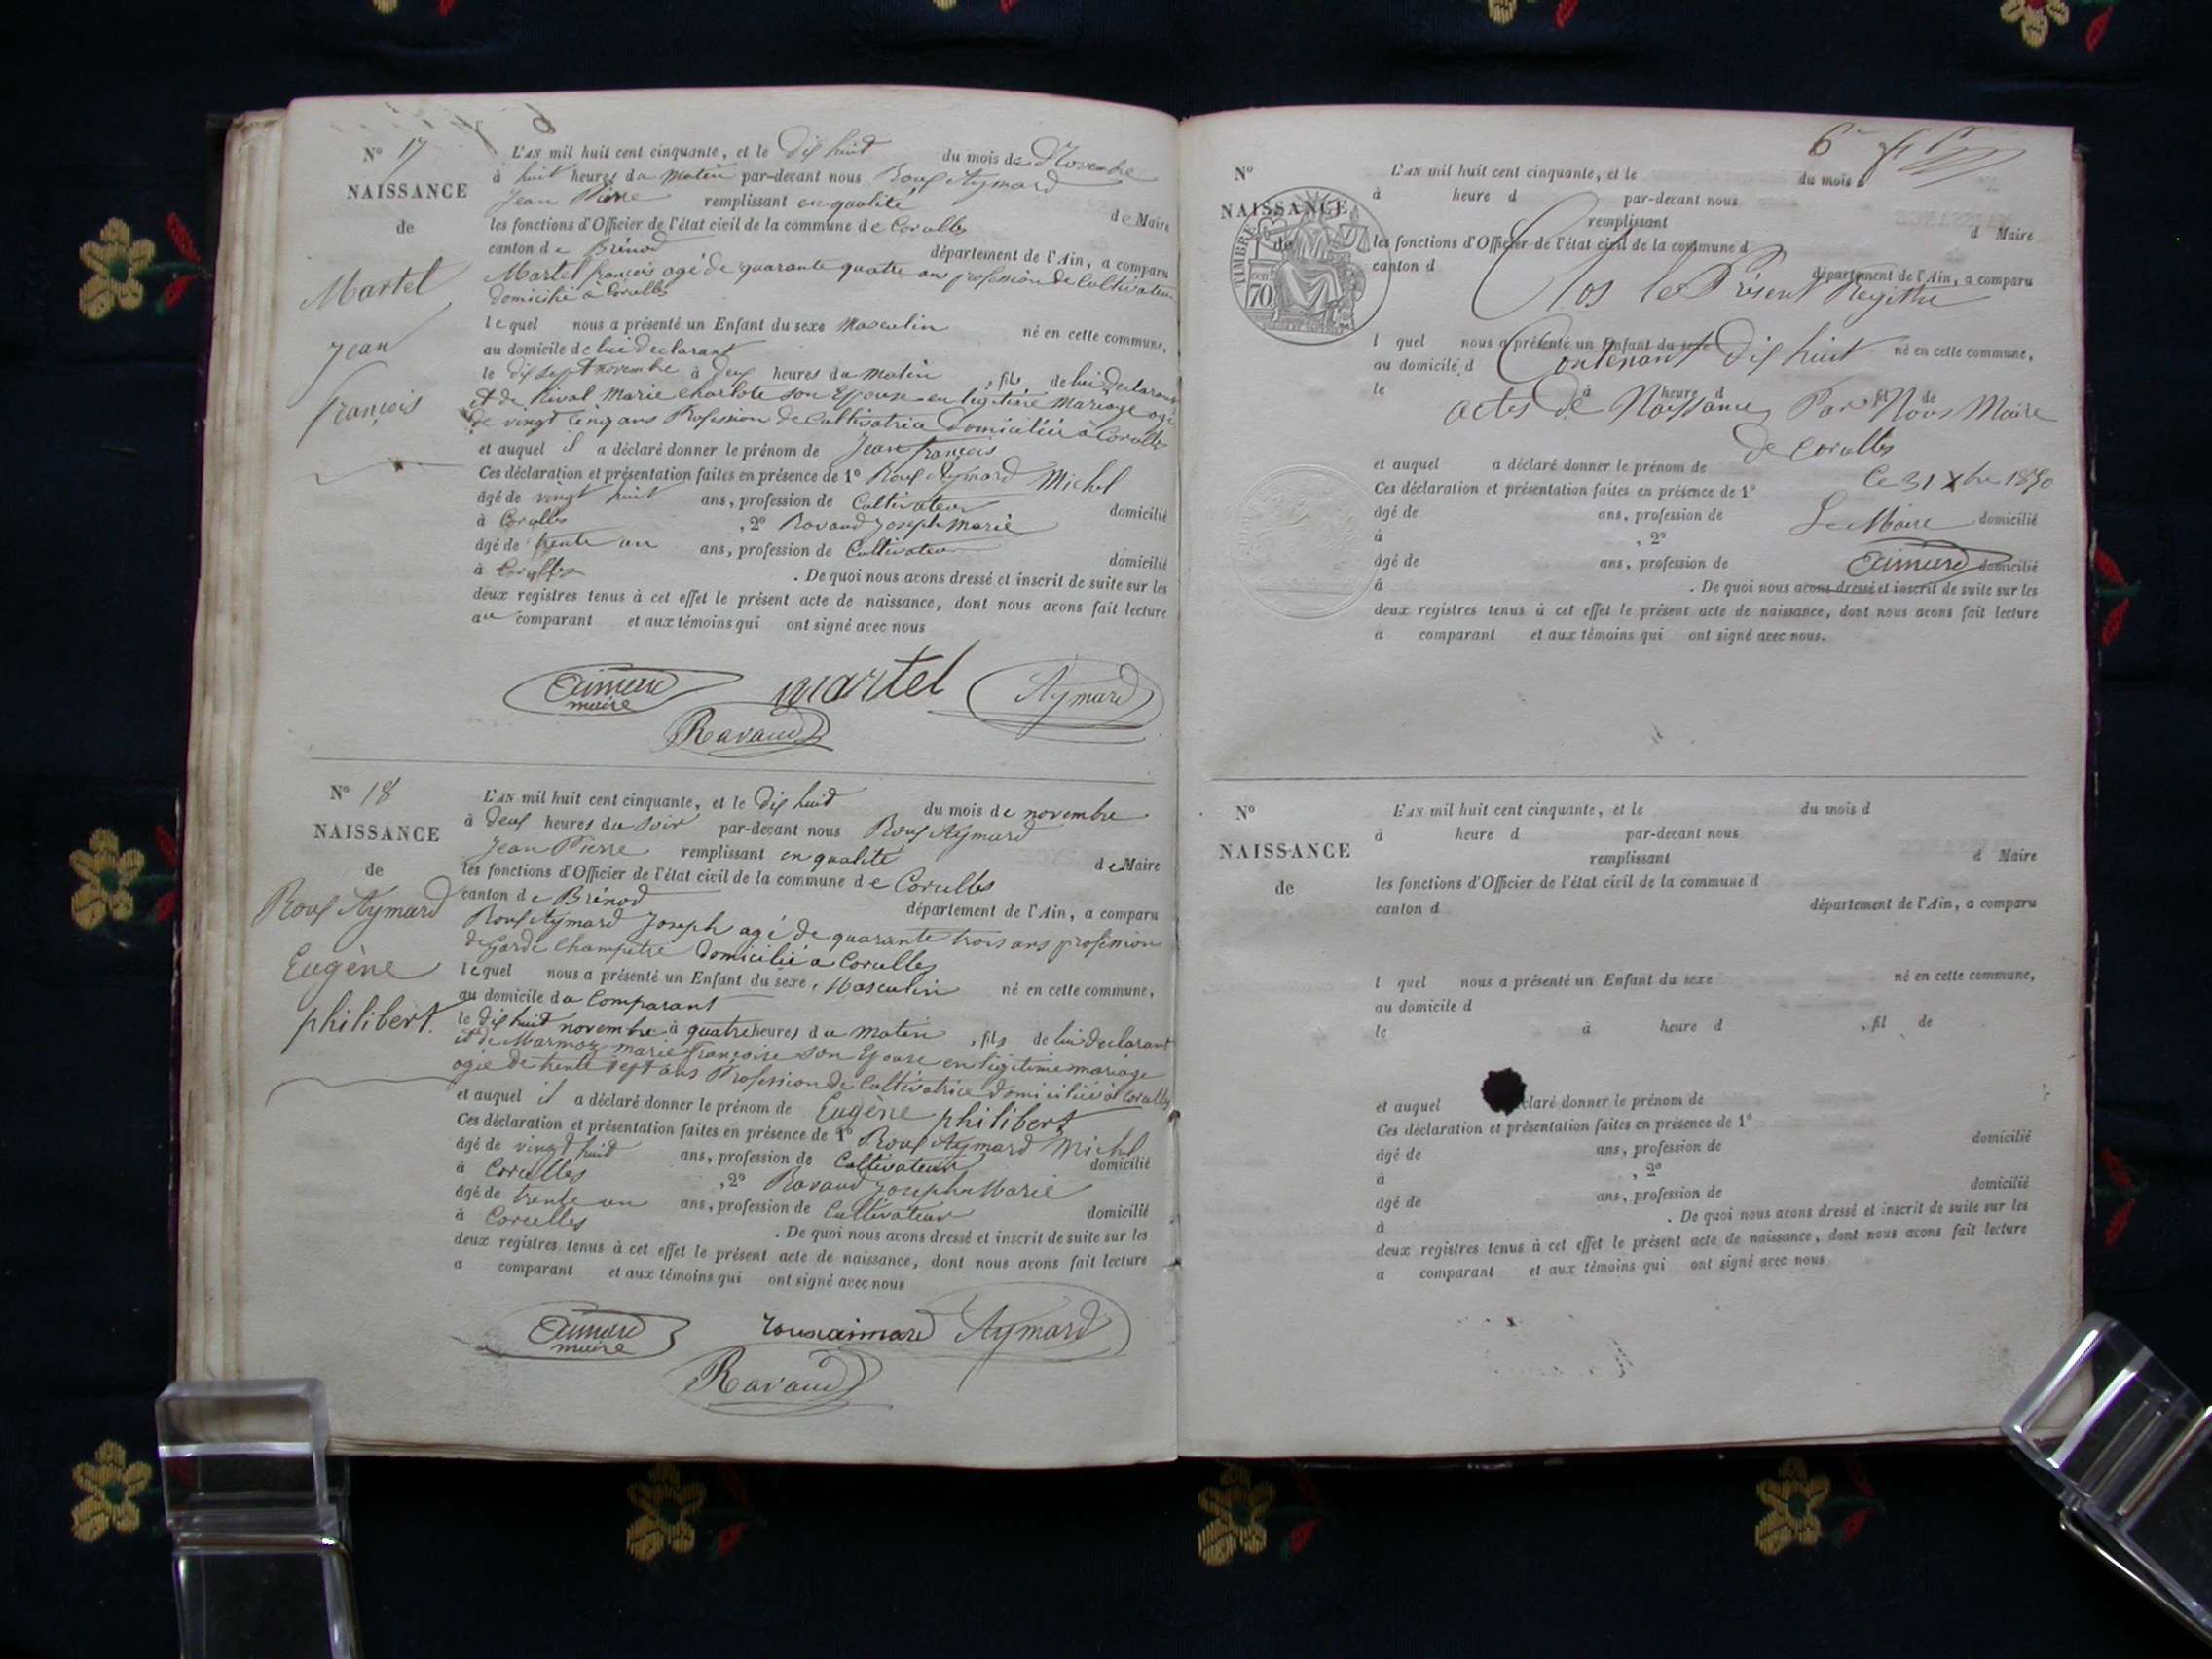 N° 17
NAISSANCE
de
Martel
Jean
François
L'AN mil huit cent cinquante, et le Dix huit du mois de Novembre
à huit heures du matin par-devant nous Roux Aymard
Jean Pierre remplissant en qualité de Maire
les fonctions d'Officier de l'état civil de la commune de Corcelles
canton de Brénod département de l'Ain, a comparu
Martel françois agé de quarante quatre ans profession de Cultivateur
domicilié à Corcelles
lequel nous a présenté un Enfant du sexe Masculin né en cette commune,
au domicile de lui declarant
le dix sept novembre à deux heures du matin, fils de lui declarant
et de Rival Marie Charlote son Epouse en légitime mariage agé
de vingt cinq ans Profession de Cultivatrice Domiciliée à Corcelles
et auquel il a déclaré donner le prénom de Jean françois
Ces déclaration et présentation faites en présence de 1° Roux Aymard Michel
âgé de vingt huit ans, profession de Cultivateur domicilié
à Corcelles, 2° Ravaud Joseph Marie
âgé de trente un ans, profession de Cultivateur domicilié
à Corcelles. De quoi nous avons dressé et inscrit de suite sur les
deux registres tenus à cet effet le présent acte de naissance, dont nous avons fait lecture
au comparant et aux témoins qui ont signé avec nous
maire martel Aymard
Ravaud
N° 18
NAISSANCE
de
Roux Aymard
Eugène
philibert.
L'AN mil huit cent cinquante, et le Dix huit du mois de novembre
à deux heures du soir par-devant nous Roux Aymard
Jean Pierre remplissant en qualité de Maire
les fonctions d'Officier de l'état civil de la commune de Corcelles
canton de Brénod département de l'Ain, a comparu
Roux Aymard Joseph agé de quarante trois ans profession
de Garde Champetre domicilié à Corcelles
lequel nous a présenté un Enfant du sexe, Masculin né en cette commune,
au domicile du Comparant
le dix huit novembre à quatre heures du matin, fils de lui declarant
et de Marmoz marie françoise son Epouse en légitime mariage
agée de trente sept ans Profession de Cultivatrice domiciliée à Corcelles
et auquel il a déclaré donner le prénom de Eugène philibert
Ces déclaration et présentation faites en présence de 1° Roux Aymard Michel
âgé de vingt huit ans, profession de Cultivateur domicilié
à Corcelles, 2° Ravaud Joseph Marie
âgé de trente un ans, profession de Cultivateur domicilié
à Corcelles. De quoi nous avons dressé et inscrit de suite sur les
deux registres tenus à cet effet le présent acte de naissance, dont nous avons fait lecture
a comparant et aux témoins qui ont signé avec nous
maire rouxaimard Aymard
Ravaud
6
N°
NAISSANCE
de
TIMBRE
70
L'AN mil huit cent cinquante, et le du mois d
à heure d par-devant nous
remplissant d Maire
les fonctions d'Officier de l'état civil de la commune d
canton d département de l'Ain, a comparu
Clos le Présent Registre
l quel nous a présenté un Enfant du sexe né en cette commune,
Contenant Dix huit
au domicile d
le à heure d, fil de
actes de Naissances Par Nous Maire
de Corcelles
et auquel a déclaré donner le prénom de
Ce 31 Xbre 1850
Ces déclaration et présentation faites en présence de 1°
âgé de ans, profession de domicilié
Le Maire
à, 2°
âgé de ans, profession de domicilié
à. De quoi nous avons dressé et inscrit de suite sur les
deux registres tenus à cet effet le présent acte de naissance, dont nous avons fait lecture
a comparant et aux témoins qui ont signé avec nous.
N°
NAISSANCE
de
L'AN mil huit cent cinquante, et le du mois d
à heure d par-devant nous
remplissant d Maire
les fonctions d'Officier de l'état civil de la commune d
canton d département de l'Ain, a comparu
l quel nous a présenté un Enfant du sexe né en cette commune,
au domicile d
le à heure d, fil de
et auquel claré donner le prénom de
Ces déclaration et présentation faites en présence de 1°
âgé de ans, profession de domicilié
à, 2°
âgé de ans, profession de domicilié
à. De quoi nous avons dressé et inscrit de suite sur les
deux registres tenus à cet effet le présent acte de naissance, dont nous avons fait lecture
a comparant et aux témoins qui ont signé avec nous